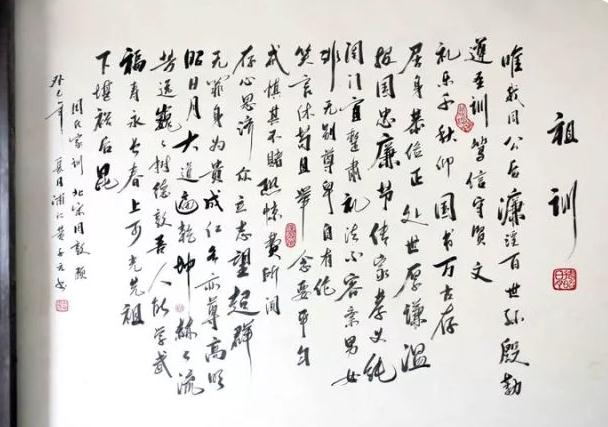 祖训
唯我周公后濂溪百世孙殷勤
遵至训笃信守贤文
礼乐千秋仰国书万古存
居身恭俭正处世厚谦温
报国忠廉节传家孝义纯
闺门宜整肃礼法不容紊男女
列无别尊卑自有伦
笑言休苟且举念要平匀
戒慎其不睹恐惧费所闻
存心思济你立志望超群
无罪身为贵成仁名亦尊高明
昭日月大道遍乾坤赫赫流
芳远巍巍树德敦吾人能学武
福寿永长春上可光先祖
下堪裕后昆
周氏家训北宋周敦颐
癸巳年夏月黄子元书